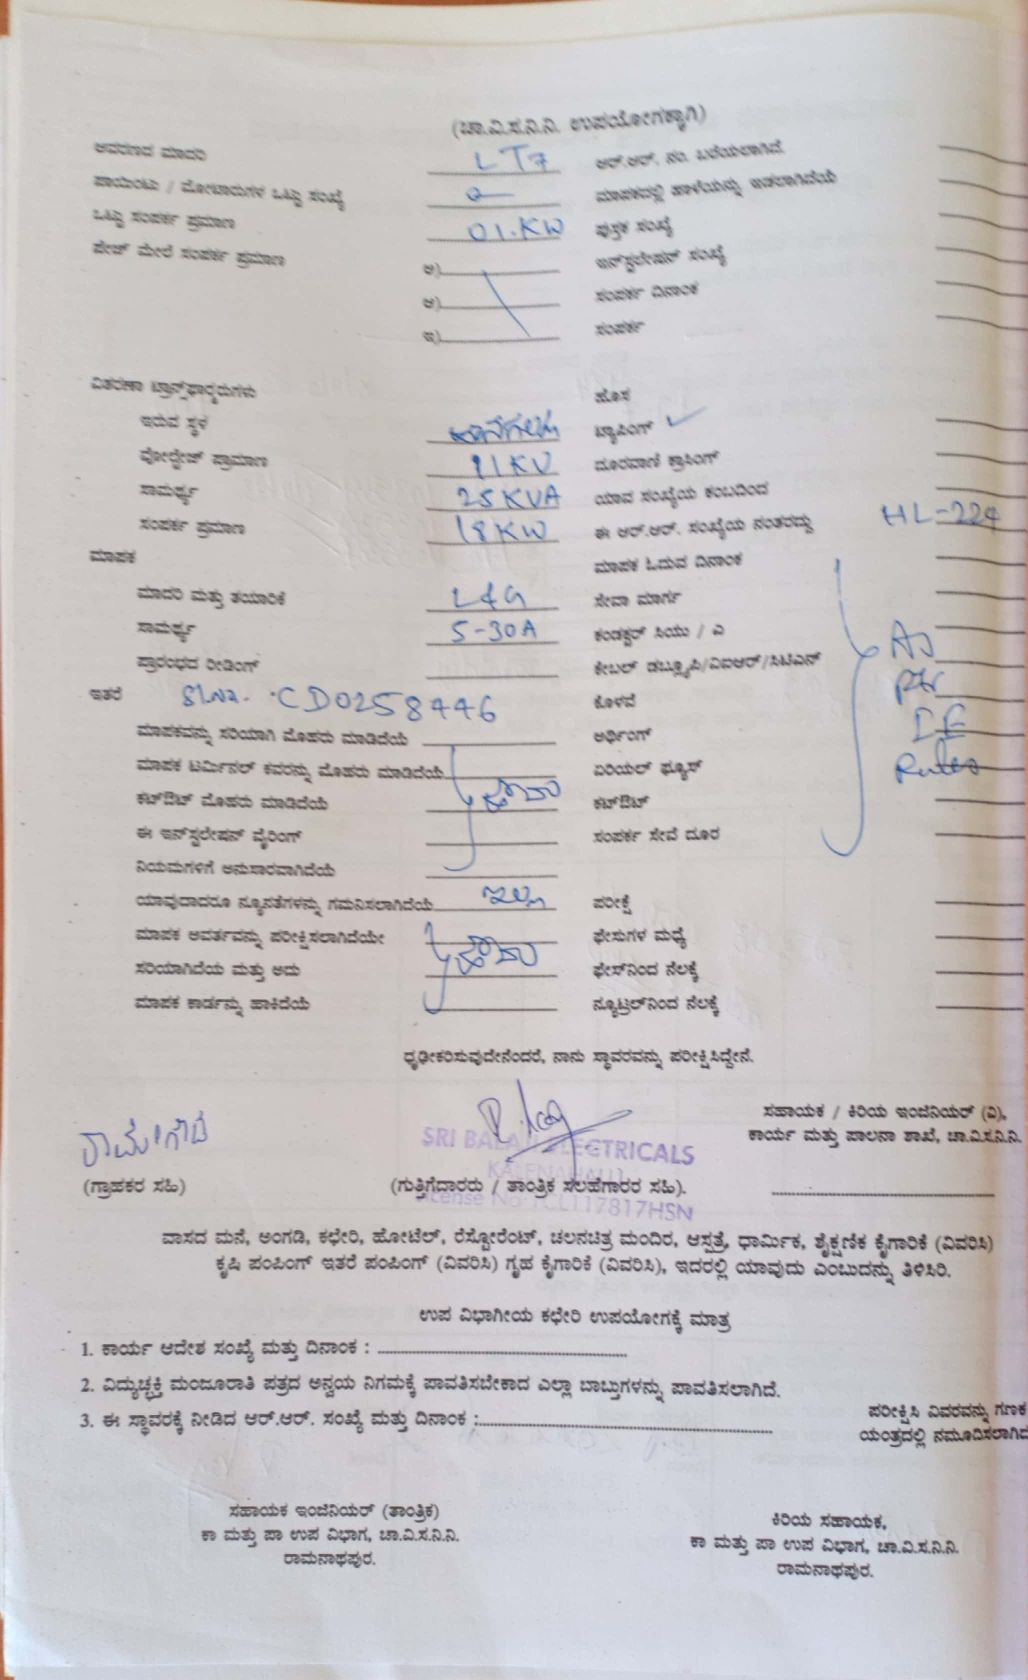 (ಚಾ.ವಿ.ಸ.ನಿ.ನಿ. ಉಪಯೋಗಕ್ಕಾಗಿ)
ಆವರಣದ ಮಾದರಿ LT7 ಆರ್.ಆರ್. ನಂ. ಬರೆಯಲಾಗಿದೆ.
ಪಾಯಿಂಟು / ಮೋಟಾರುಗಳ ಒಟ್ಟು ಸಂಖ್ಯೆ ಮಾಪಕದಲ್ಲಿ ಹಾಳೆಯನ್ನು ಇಡಲಾಗಿದೆಯೆ
ಒಟ್ಟು ಸಂಪರ್ಕ ಪ್ರಮಾಣ 01.KW ಪುಸ್ತಕ ಸಂಖ್ಯೆ
ಪೇಜ್ ಮೇಲೆ ಸಂಪರ್ಕ ಪ್ರಮಾಣ ಅ) ಇನ್‌ಸ್ಟಲೇಷನ್ ಸಂಖ್ಯೆ
ಆ) ಸಂಪರ್ಕ ದಿನಾಂಕ
ಇ) ಸಂಪರ್ಕ
ವಿತರಣಾ ಟ್ರಾನ್ಸ್‌ಫಾರ್ಮರುಗಳು ಹೊಸ
ಇರುವ ಸ್ಥಳ ಟ್ಯಾಪಿಂಗ್
ವೋಲ್ಟೇಜ್ ಪ್ರಾಮಾಣ 11KV ದೂರವಾಣಿ ಕ್ರಾಸಿಂಗ್
ಸಾಮರ್ಥ್ಯ 25KVA ಯಾವ ಸಂಖ್ಯೆಯ ಕಂಬದಿಂದ
ಸಂಪರ್ಕ ಪ್ರಮಾಣ 18KW ಈ ಆರ್.ಆರ್. ಸಂಖ್ಯೆಯ ನಂತರದ್ದು HL-224
ಮಾಪಕ ಮಾಪಕ ಓದುವ ದಿನಾಂಕ
ಮಾದರಿ ಮತ್ತು ತಯಾರಿಕೆ L&G ಸೇವಾ ಮಾರ್ಗ
ಸಾಮರ್ಥ್ಯ 5-30A ಕಂಡಕ್ಟರ್ ಸಿಯು / ಎ As
ಪ್ರಾರಂಭದ ರೀಡಿಂಗ್ ಕೇಬಲ್ ಡಬ್ಲ್ಯೂಪಿ/ವಿಐಆರ್/ಸಿಟಿಎಸ್ Per
ಇತರೆ Sl.No. CD0258446 ಕೊಳವೆ
ಮಾಪಕವನ್ನು ಸರಿಯಾಗಿ ಮೊಹರು ಮಾಡಿದೆಯೆ ಅರ್ಥಿಂಗ್ IE
ಮಾಪಕ ಟರ್ಮಿನಲ್ ಕವರನ್ನು ಮೊಹರು ಮಾಡಿದೆಯೆ ಏರಿಯಲ್ ಫ್ಯೂಸ್ Rules
ಕಟ್‌ಔಟ್ ಮೊಹರು ಮಾಡಿದೆಯೆ ಹೌದು ಕಟ್‌ಔಟ್
ಈ ಇನ್‌ಸ್ಟಲೇಷನ್ ವೈರಿಂಗ್ ಸಂಪರ್ಕ ಸೇವೆ ದೂರ
ನಿಯಮಗಳಿಗೆ ಅನುಸಾರವಾಗಿದೆಯೆ
ಯಾವುದಾದರೂ ನ್ಯೂನತೆಗಳನ್ನು ಗಮನಿಸಲಾಗಿದೆಯೆ ಇಲ್ಲ ಪರೀಕ್ಷೆ
ಮಾಪಕ ಆವರ್ತವನ್ನು ಪರೀಕ್ಷಿಸಲಾಗಿದೆಯೇ ಫೇಸುಗಳ ಮಧ್ಯೆ
ಸರಿಯಾಗಿದೆಯ ಮತ್ತು ಅದು ಹೌದು ಫೇಸ್‌ನಿಂದ ನೆಲಕ್ಕೆ
ಮಾಪಕ ಕಾರ್ಡನ್ನು ಹಾಕಿದೆಯೆ ನ್ಯೂಟ್ರಲ್‌ನಿಂದ ನೆಲಕ್ಕೆ
ಧೃಢೀಕರಿಸುವುದೇನೆಂದರೆ, ನಾನು ಸ್ಥಾವರವನ್ನು ಪರೀಕ್ಷಿಸಿದ್ದೇನೆ.
ಸಹಾಯಕ / ಕಿರಿಯ ಇಂಜಿನಿಯರ್ (ವಿ),
ಕಾರ್ಯ ಮತ್ತು ಪಾಲನಾ ಶಾಖೆ, ಚಾ.ವಿ.ಸ.ನಿ.ನಿ.
ರಾಮೇಗೌಡ
SRI BALAJI ELECTRICALS
KALENAHALLI
License No 1CL117817HSN
(ಗ್ರಾಹಕರ ಸಹಿ) (ಗುತ್ತಿಗೆದಾರರು / ತಾಂತ್ರಿಕ ಸಲಹೆಗಾರರ ಸಹಿ).
ವಾಸದ ಮನೆ, ಅಂಗಡಿ, ಕಛೇರಿ, ಹೋಟೆಲ್, ರೆಸ್ಟೋರೆಂಟ್, ಚಲನಚಿತ್ರ ಮಂದಿರ, ಆಸ್ಪತ್ರೆ, ಧಾರ್ಮಿಕ, ಶೈಕ್ಷಣಿಕ ಕೈಗಾರಿಕೆ (ವಿವರಿಸಿ)
ಕೃಷಿ ಪಂಪಿಂಗ್ ಇತರೆ ಪಂಪಿಂಗ್ (ವಿವರಿಸಿ) ಗೃಹ ಕೈಗಾರಿಕೆ (ವಿವರಿಸಿ), ಇದರಲ್ಲಿ ಯಾವುದು ಎಂಬುದನ್ನು ತಿಳಿಸಿರಿ.
ಉಪ ವಿಭಾಗೀಯ ಕಛೇರಿ ಉಪಯೋಗಕ್ಕೆ ಮಾತ್ರ
1. ಕಾರ್ಯ ಆದೇಶ ಸಂಖ್ಯೆ ಮತ್ತು ದಿನಾಂಕ :
2. ವಿದ್ಯುಚ್ಛಕ್ತಿ ಮಂಜೂರಾತಿ ಪತ್ರದ ಅನ್ವಯ ನಿಗಮಕ್ಕೆ ಪಾವತಿಸಬೇಕಾದ ಎಲ್ಲಾ ಬಾಬ್ತುಗಳನ್ನು ಪಾವತಿಸಲಾಗಿದೆ.
3. ಈ ಸ್ಥಾವರಕ್ಕೆ ನೀಡಿದ ಆರ್.ಆರ್. ಸಂಖ್ಯೆ ಮತ್ತು ದಿನಾಂಕ : ಪರೀಕ್ಷಿಸಿ ವಿವರವನ್ನು ಗಣಕ
ಯಂತ್ರದಲ್ಲಿ ನಮೂದಿಸಲಾಗಿದೆ
ಸಹಾಯಕ ಇಂಜಿನಿಯರ್ (ತಾಂತ್ರಿಕ) ಕಿರಿಯ ಸಹಾಯಕ,
ಕಾ ಮತ್ತು ಪಾ ಉಪ ವಿಭಾಗ, ಚಾ.ವಿ.ಸ.ನಿ.ನಿ. ಕಾ ಮತ್ತು ಪಾ ಉಪ ವಿಭಾಗ, ಚಾ.ವಿ.ಸ.ನಿ.ನಿ.
ರಾಮನಾಥಪುರ. ರಾಮನಾಥಪುರ.